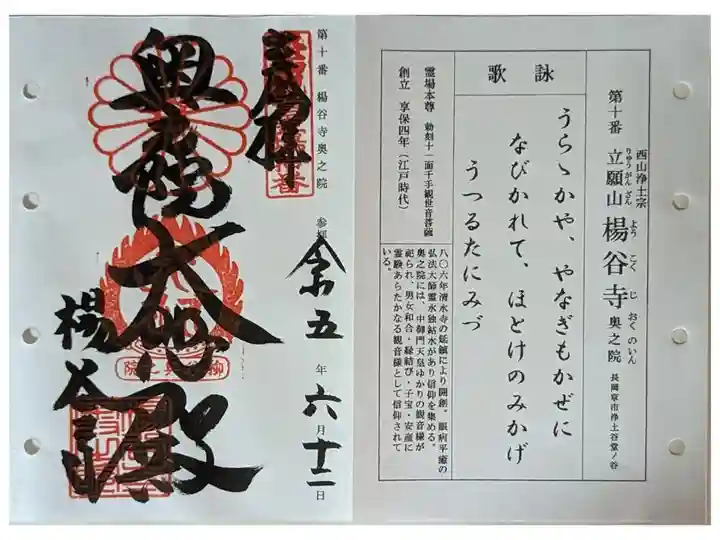 西山浄土宗
第十番 立願山 楊谷寺 奥之院 長岡京市浄土谷堂ノ谷
りゅうがんざん
よう こく じ おくのいん
詠歌
うらゝかや、やなぎもかぜに
なびかれて、ほとけのみかげ
うつるたにみづ
霊場本尊 勅刻十一面千手観世音菩薩
創立 享保四年(江戸時代)
八〇六年清水寺の延鎮により開創。眼病平癒の
弘法大師霊水独鈷水があり信仰を集める。
奥之院には、中御門天皇ゆかりの観音様が
祀られ、男女和合・縁結び・子宝・安産に
霊験あらたかなる観音様として信仰されて
いる。
第十番 楊谷寺奥之院 参拝
令五年六月十二日
奉拝
大悲殿
楊谷山